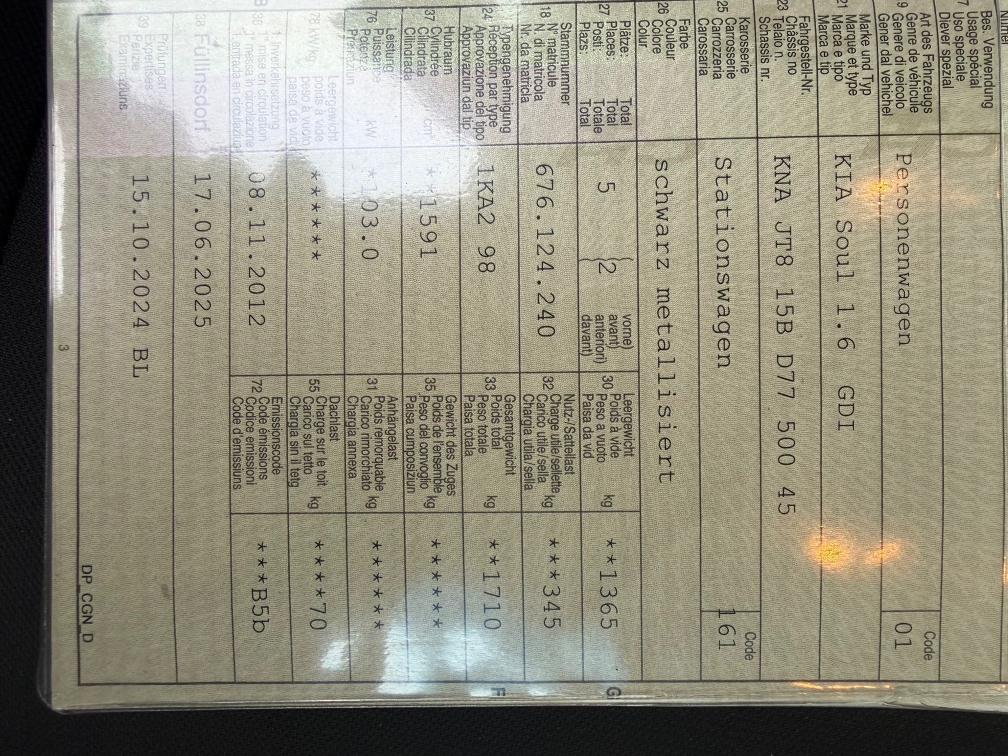 Bes. Verwendung
Usage spécial
Uso speciale
Diever spezial
Art des Fahrzeugs
Genre de véhicule
Genere di veicolo
Gener dal vehichel
Personenwagen
Code
01
21 Marke und Typ
Marque et type
Marca e tipo
Marca e tip
KIA Soul 1.6 GDI
23 Fahrgestell-Nr.
Châssis no
Telaio n.
Schassis nr.
KNA JT8 15B D77 5000 45
25 Karosserie
Carrosserie
Carrozzeria
Carossaria
Stationswagen
Code
161
26 Farbe
Couleur
Colore
Colur
schwarz metallisiert
27 Plätze: Total
Places: Total
Posti: Totale
Plazs: Total
5 (2
vorne)
avant)
anteriori)
davant)
30 Leergewicht
Poids à vide
Peso a vuoto kg
Paisa da vid
**1365
G
18 Stammnummer
N° matricule
N. di matricola
Nr. da matricla
676.124.240
32 Nutz-/Sattellast
Charge utile/sellette
Carico utile/sella kg
Chargia utila/sella
***345
24 Typengenehmigung
Réception par type
Approvazione del tipo
Approvaziun dal tip
1KA2 98
33 Gesamtgewicht
Poids total
Peso totale kg
Paisa totala
**1710
F
37 Hubraum
Cylindrée
Cilindrata cm³
Cilindrada
**1591
35 Gewicht des Zuges
Poids de l'ensemble
Peso del convoglio kg
Paisa cumposiziun
******
76 Leistung
Puissance kW
*103.0
31 Anhängelast
Poids remorquable
Carico rimorchiato kg
Chargia annexa
******
78 kW/kg
Leergewicht
poids à vide
peso a vuoto
******
55 Dachlast
Charge sur le toit
Carico sul tetto kg
Chargia sin il tetg
****70
B
36
08.11.2012
72 Emissionscode
Code émissions
Codice emissioni
Code d'emissiuns
***B5b
38 Füllinsdorf
17.06.2025
39 Prüfungen
Expertises
15.10.2024 BL
3
DP_CGN_D